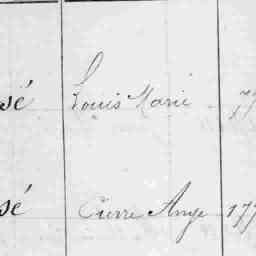 sé Louis Marie 17
sé Pierre Ange 177